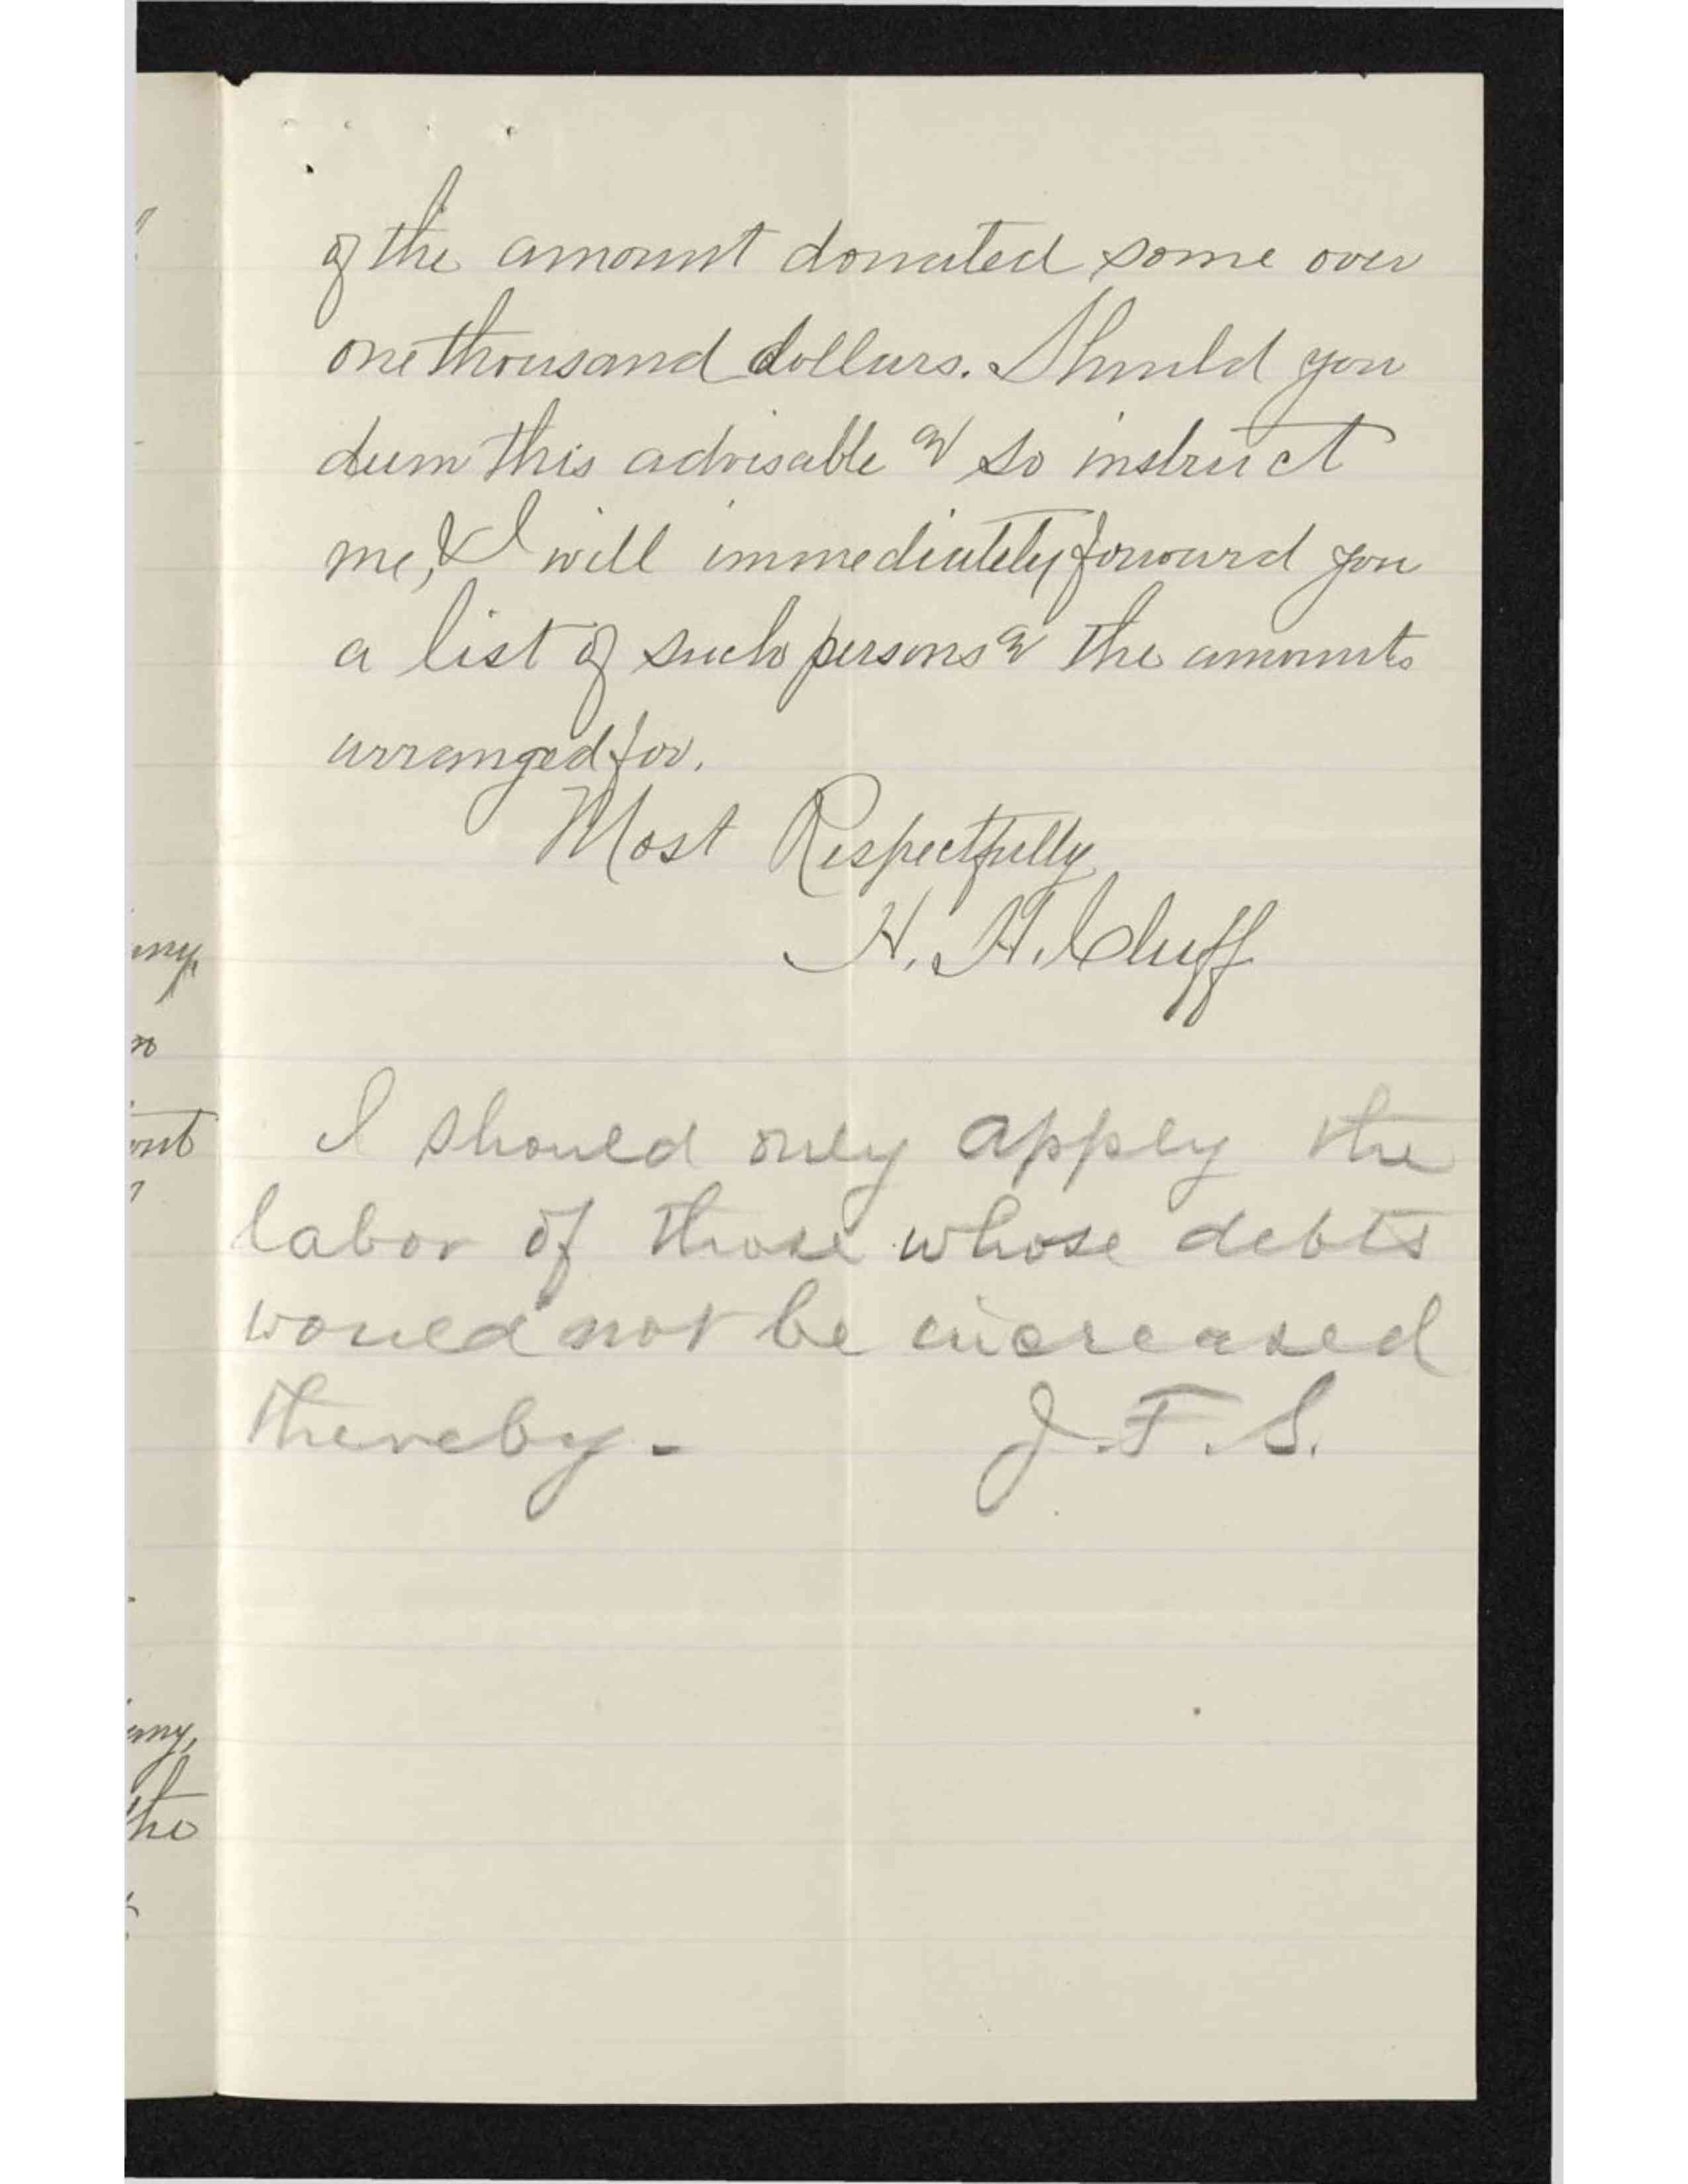 of the amount donated some over
one thousand dollars. Should you
deem this advisable & so instruct
me, & I will immediately forward you
a list of such persons & the amounts
arranged for.
Most Respectfully
H. H. Cluff
I should only apply the
labor of those whose debts
would not be increased
thereby.-
J. F. S.